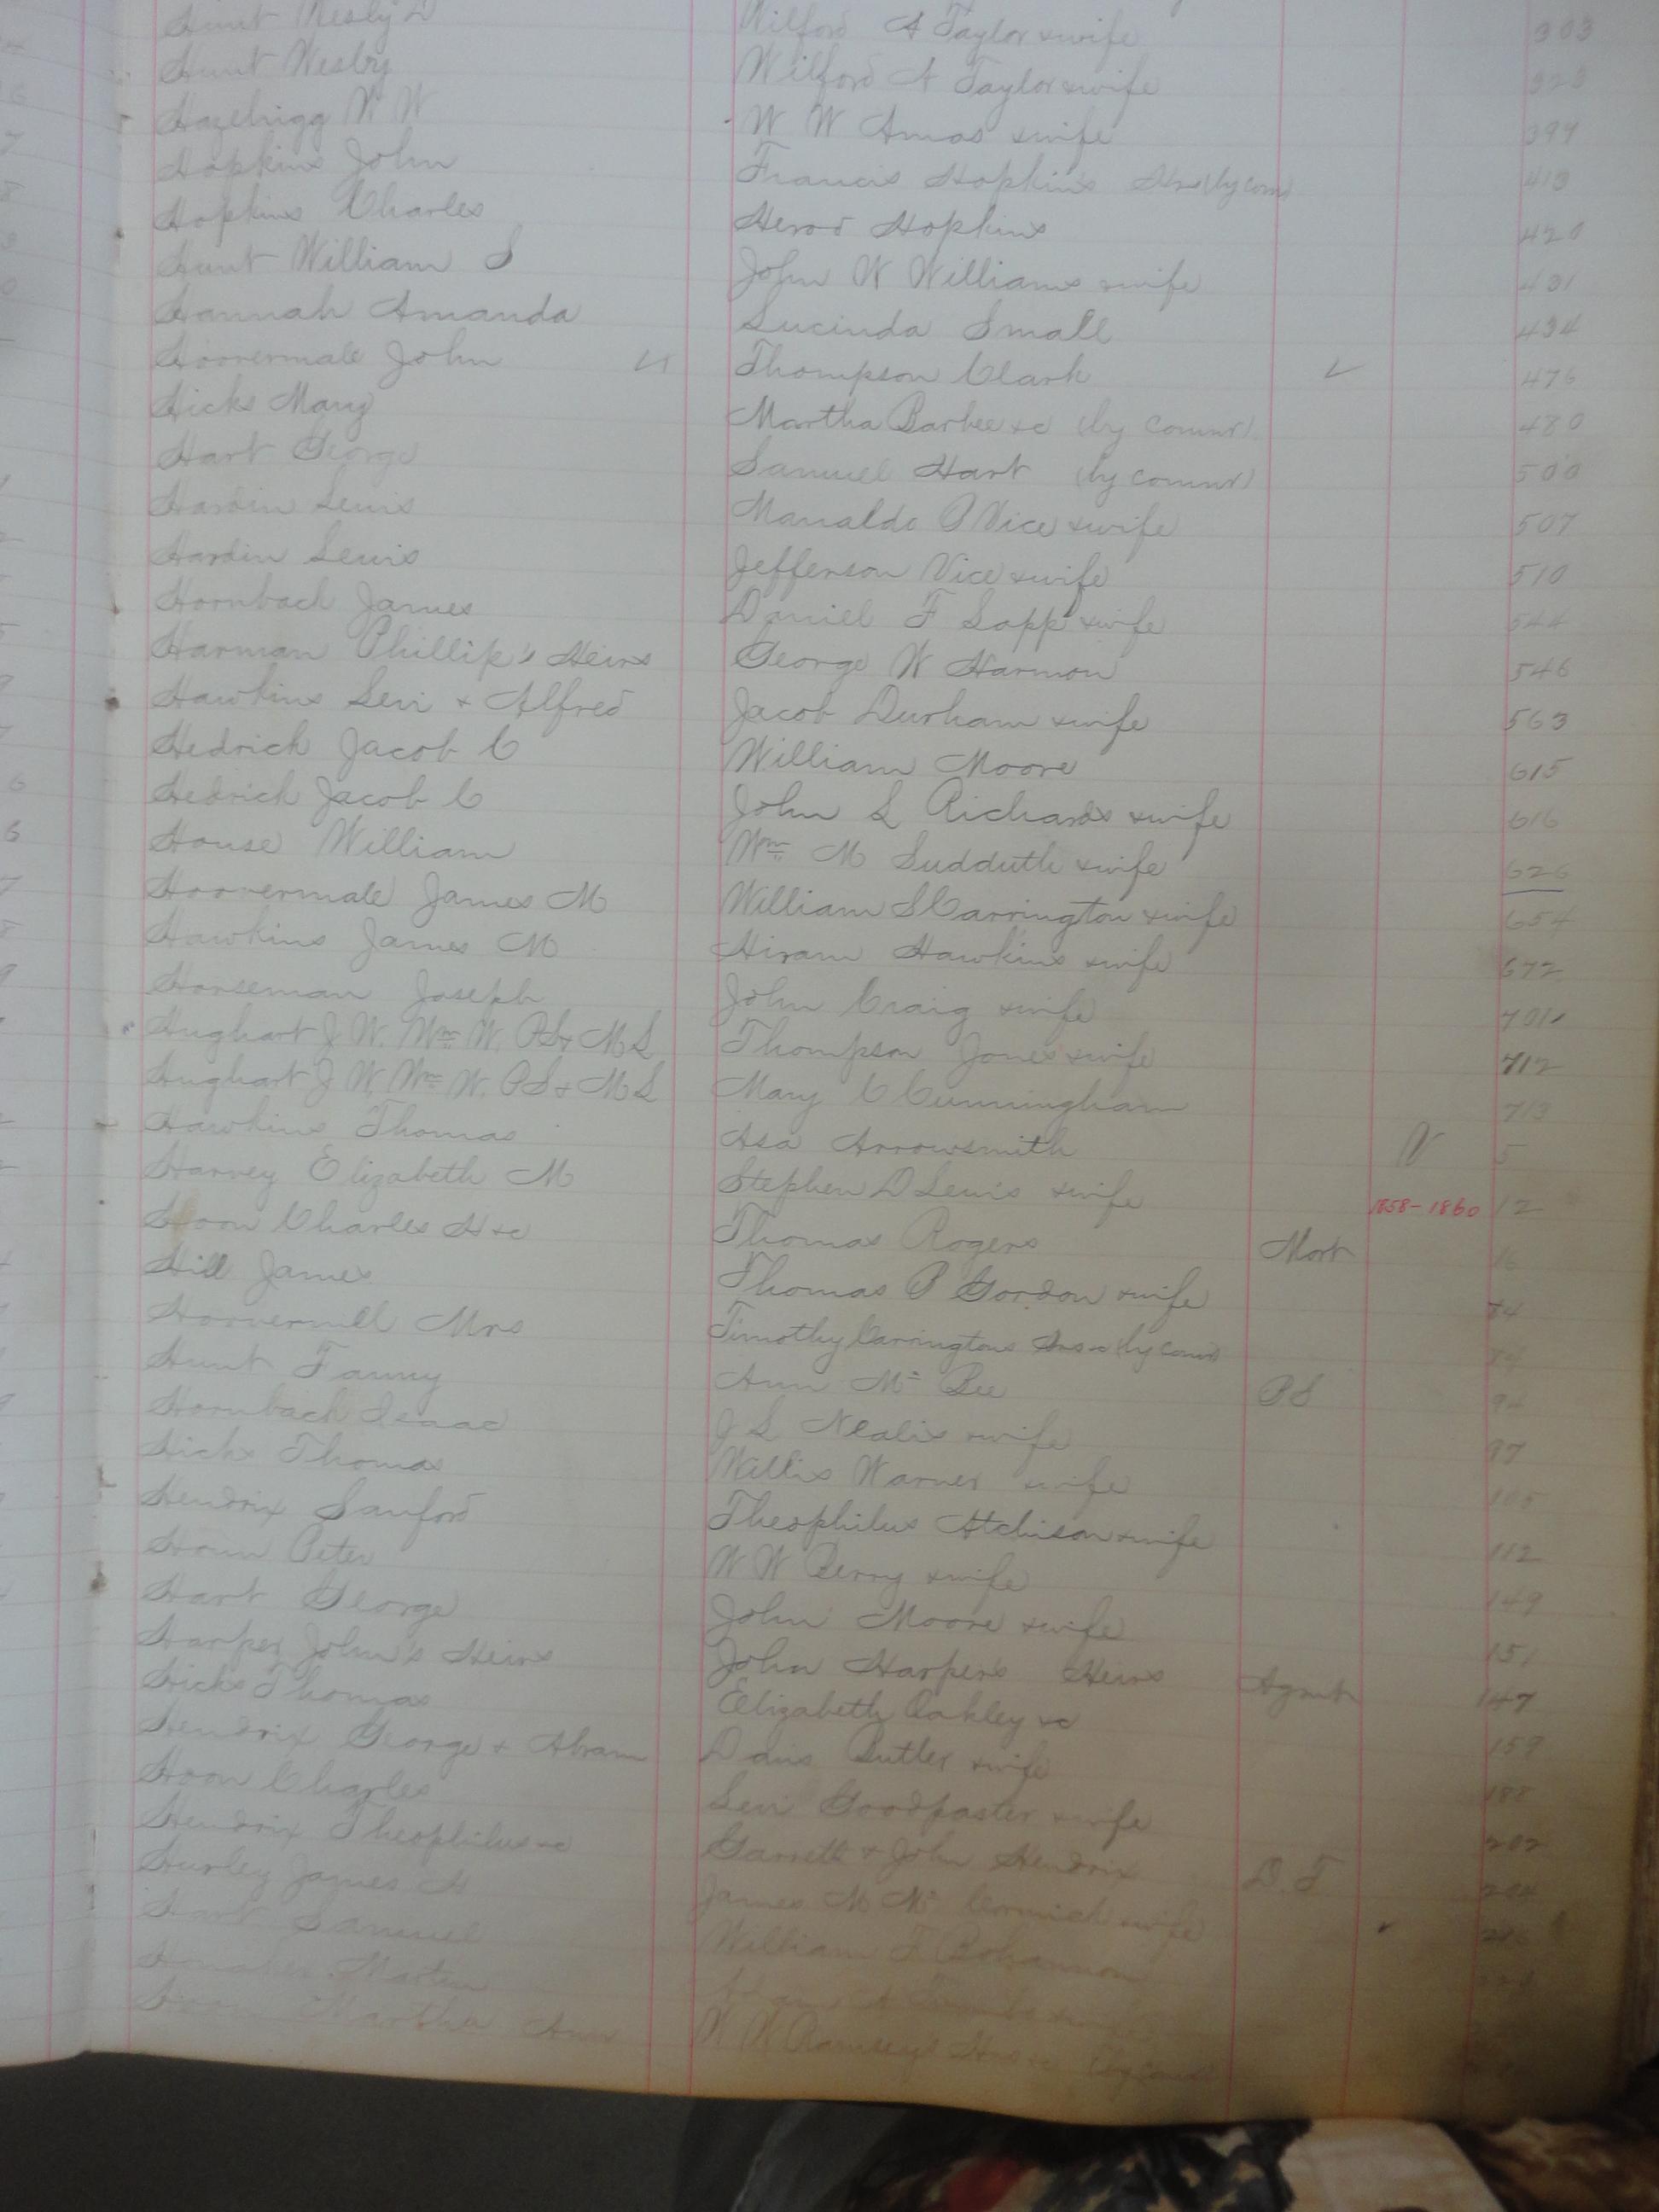 Hunt Wesly D Wilford A Taylor & wife 303
Hunt Wesley Wilford A Taylor & wife 323
Hazelrigg W W W W Amos & wife 394
Hopkins John Francis Hopkins Hrs (by com) 413
Hopkins Charles Herod Hopkins 420
Hunt William S John W Williams & wife 431
Hannah Amanda Lucinda Small 434
Hoovermale John Thompson Clark 476
Hicks Mary Martha Barbee &c (by commr) 480
Hart George Samuel Hart (by commr) 500
Hardin Lewis P Vice & wife 507
Hardin Lewis Jefferson Vice & wife 510
Hornback James Daniel F Sapp & wife 544
Harman Phillip's Heirs George W Harmon 546
Hawkins Levi & Alfred Jacob Durham & wife 563
Hedrick Jacob C William Moore 615
Hedrick Jacob C John L Richards & wife 616
House William Wm M Sudduth & wife 626
Hoovermale James M William S Carrington & wife 654
Hawkins James M Hiram Hawkins & wife 672
Horseman Joseph John Craig & wife 701
Hughart J W. Wm W. PS & M L Thompson Jones & wife 712
Hughart J W. Wm W. PS & M L Mary C Cunningham 713
Hawkins Thomas Asa Arrowsmith V 5
Harvey Elizabeth M Stephen D Lewis & wife 1858-1860 12
Hoon Charles H &c Thomas Rogers Mort 16
Hill James Thomas P Gordon & wife 74
Hoovermill Mrs Timothy Carringtons Hrs &c (by com)
Hunt Fanny Ann Mc Bee PS 94
Hornback Isaac J L Nealis & wife 97
Hicks Thomas Willis Warner & wife 105
Hendrix Sanford Theophilus Atchison & wife 112
Honn Peter W W Berry & wife 149
Hart George John Moore & wife 151
Harper John's Heirs John Harper's Heirs Agmt 147
Hicks Thomas Elizabeth Oakley &c 159
Hendrix George & Abram Davis Butler & wife 188
Hoon Charles Levi Goodpaster & wife 202
Hendrix Theophilus &c Garrett & John Hendrix D. T 204
Hurley James H James M Mc Cormick & wife
Hart Samuel William F Bohannon
Martin
Martha Ann Ramsey's Hrs &c (by com)